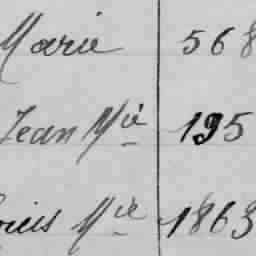 Marie 568
Jean Mie 195
Louis Mie 1863